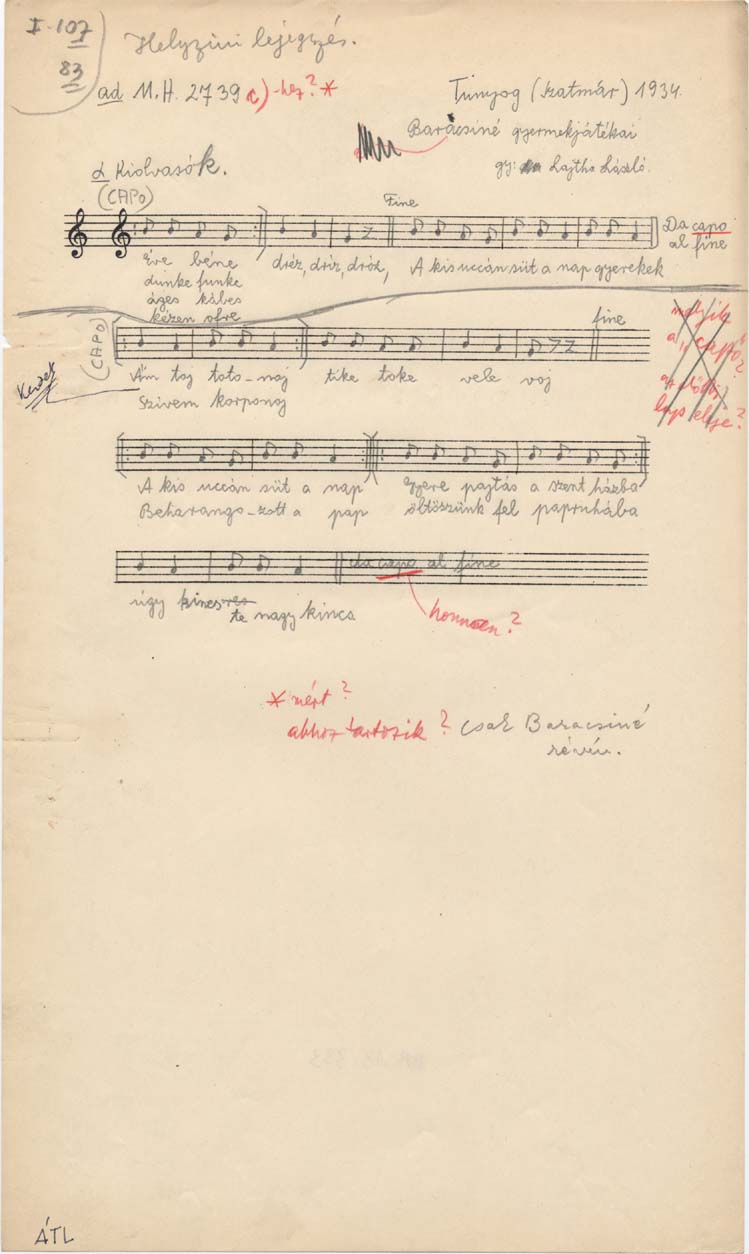 I-107
83
Helyzini lejegyzés.
ad M.H. 2739 c)-hez? *
Tunyog (Szatmár) 1934.
Barácsiné gyermekjátékai
gy: Lajtha László.
d Kiolvasók.
(CAPO)
Fine
Da capo
al fine
Ére béne
dréz, dríz, dróz, A kis uccán süt a nap gyerekek
dunke funke
áges kábes
kézen ofre
(CAPO)
fine
melyik
a "capo"?
az előző
lap eleje?
Kezdet
Ám taj toto-naj tike toke vele voj
Szivem korponaj
A kis uccán süt a nap Gyere pajtás a szent házba
Beharango-zott a pap öltöszünk fel papruhába
da capo al fine
úgy kincs te nagy kincs
honnan?
* mért?
ahhoz tartozik? Csak Baracsiné
révén.
ÁTL